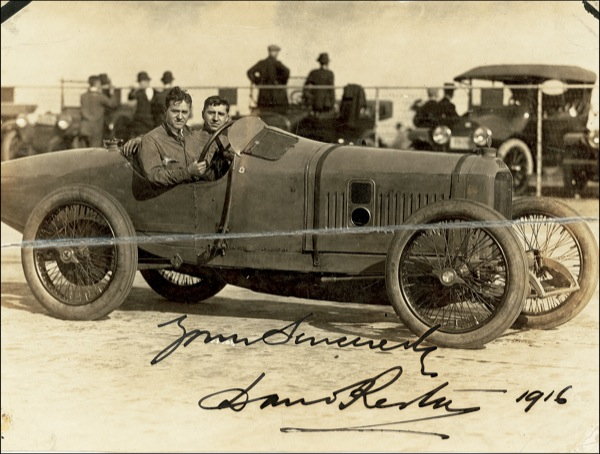 Yours Sincerely
Dario Resta 1916